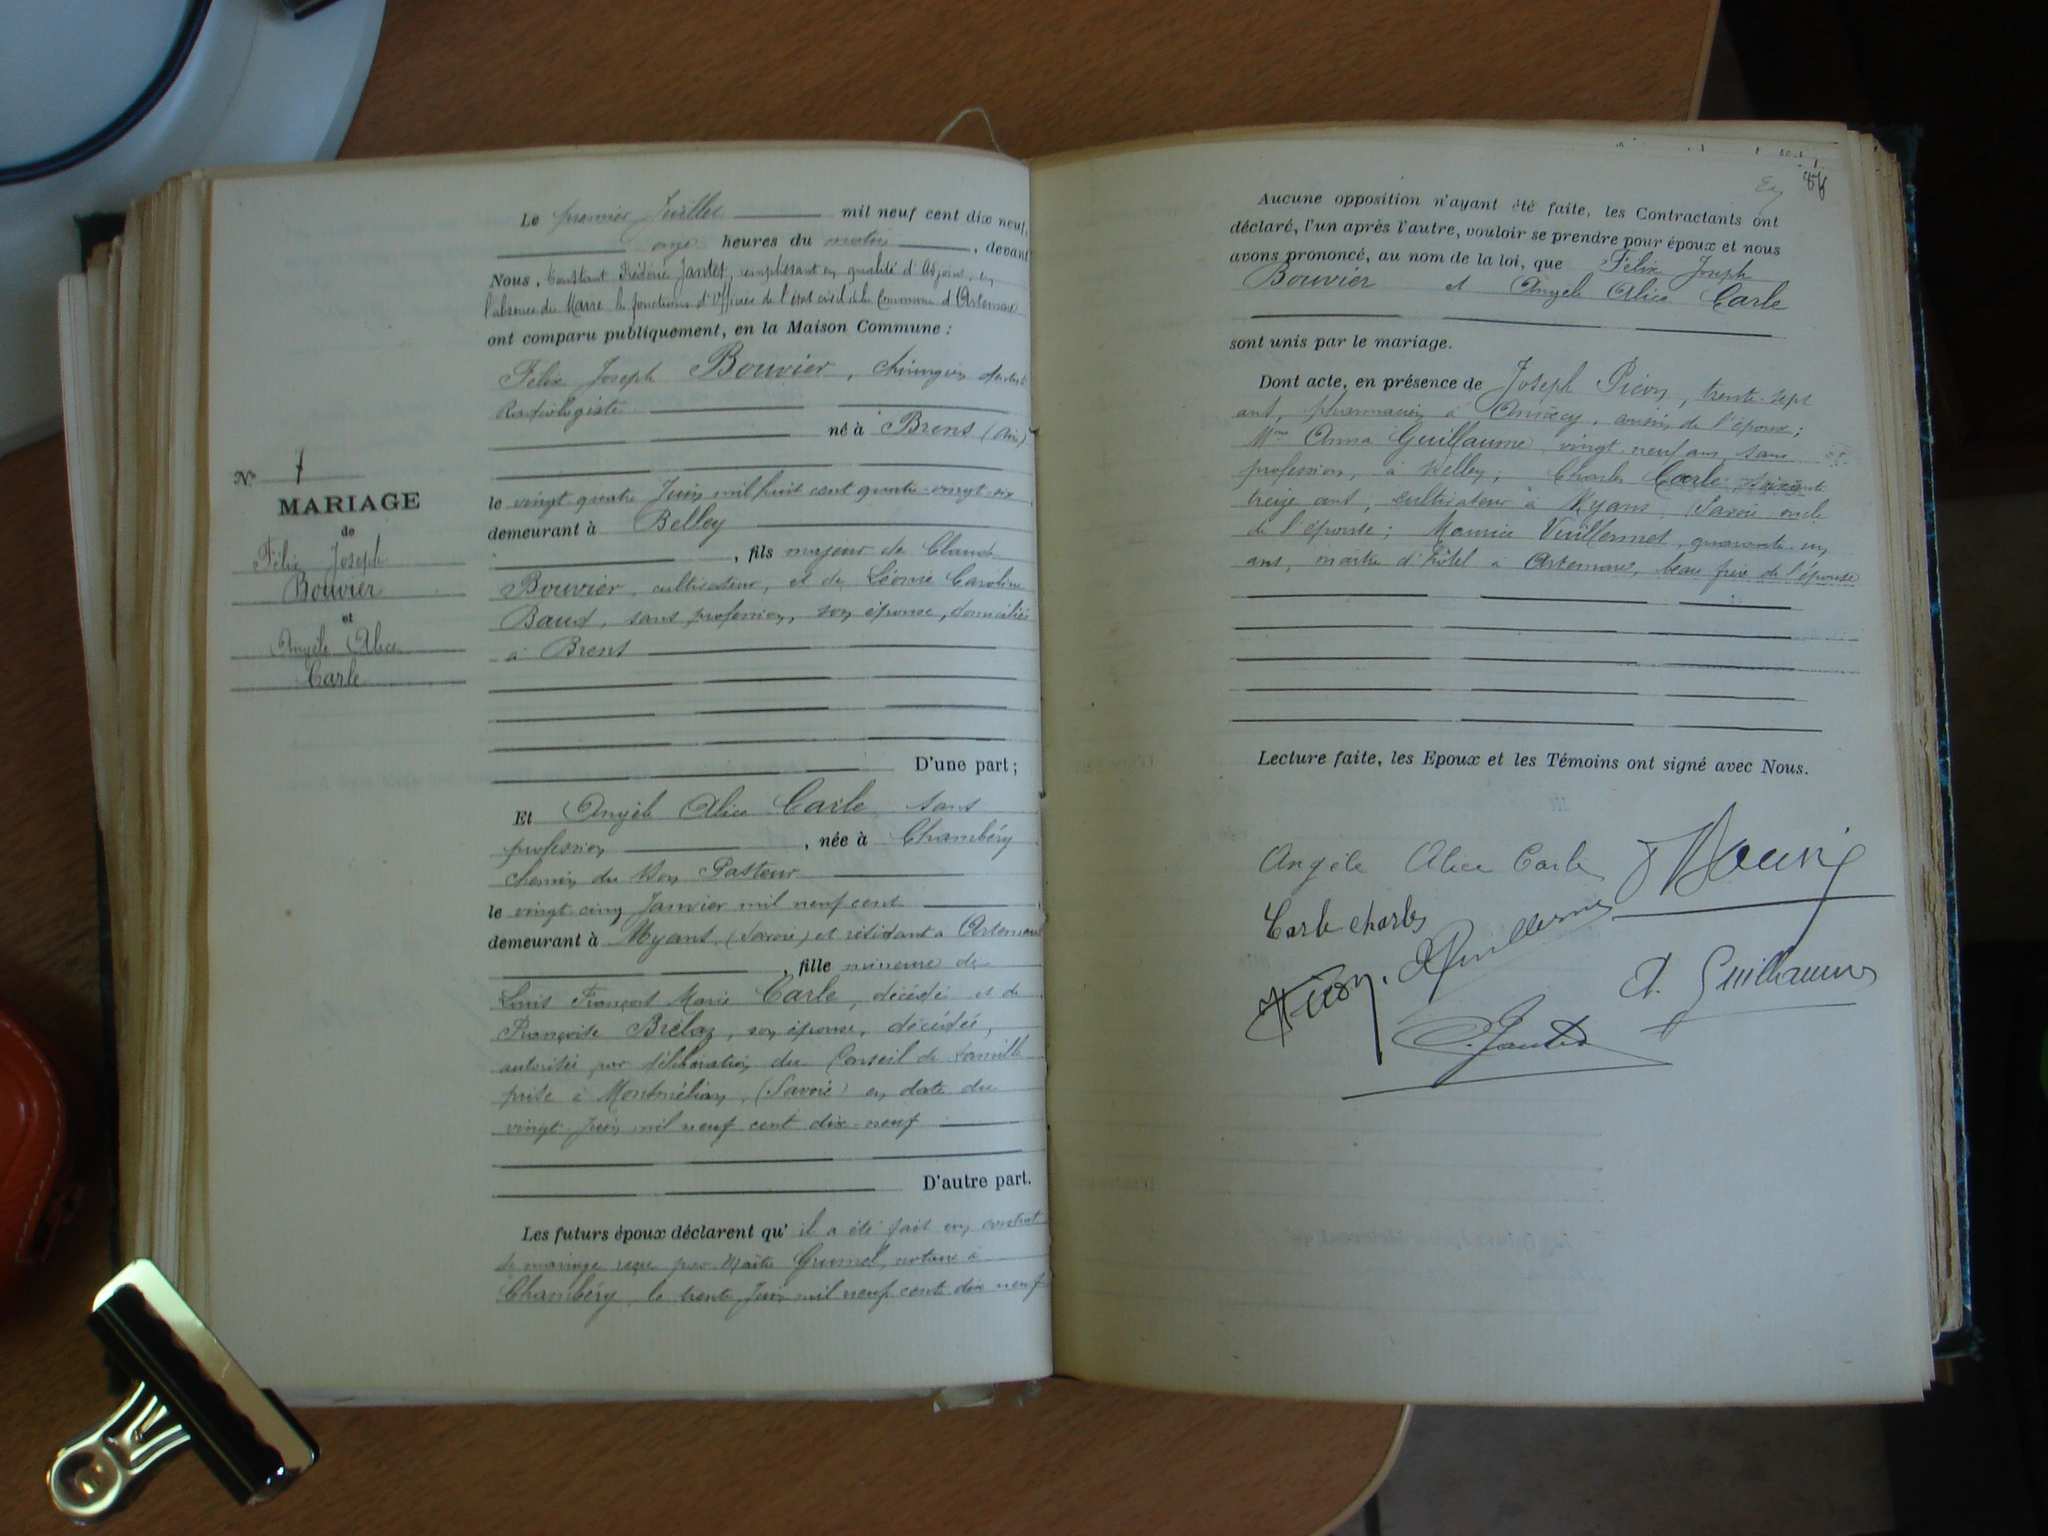 Le premier Juillet mil neuf cent dix neuf,
onze heures du matin, devant
Nous, Constant Frédéric Jantet, remplissant en qualité d'Adjoint, en
l'absence du Maire les fonctions d'Officier de l'état civil de la Commune d'Artemare
ont comparu publiquement, en la Maison Commune :
Félix Joseph Bouvier, chirurgien dentiste
Radiologiste
né à Brens (Ain)
le vingt quatre Juin mil huit cent quatre-vingt-six
demeurant à Belley
, fils majeur de Claude
Bouvier, cultivateur, et de Léonie Caroline
Baud, sans profession, son épouse, domiciliés
à Brens
D'une part ;
Nº 7
MARIAGE
de
Félix Joseph
Bouvier
et
Angèle Alice
Carle
Et Angèle Alice Carle, sans
profession, née à Chambéry
chemin du Bon Pasteur
le vingt cinq Janvier mil neuf cent
demeurant à Myans (Savoie) et résidant à Artemare
, fille mineure de
Louis François Marie Carle, décédé et de
Françoise Brélaz, son épouse, décédée,
autorisée par délibération du Conseil de famille
prise à Montmélian, (Savoie) en date du
vingt Juin mil neuf cent dix-neuf
D'autre part.
Les futurs époux déclarent qu' il a été fait un contrat
de mariage reçu par Maître Grumel, notaire à
Chambéry, le trente Juin mil neuf cent dix neuf
86
Aucune opposition n'ayant été faite, les Contractants ont
déclaré, l'un après l'autre, vouloir se prendre pour époux et nous
avons prononcé, au nom de la loi, que Félix Joseph
Bouvier et Angèle Alice Carle
sont unis par le mariage.
Dont acte, en présence de Joseph Picon, trente-sept
ans, pharmacien à Annecy, cousin de l'époux ;
Mme Anna Guillaume, vingt neuf ans, sans
profession, à Belley ; Charles Carle, soixante
treize ans, cultivateur à Myans, Savoie oncle
de l'épouse ; Maurice Vuillermet, quarante un
ans, maître d'hôtel à Artemare, beau frère de l'épouse
Lecture faite, les Epoux et les Témoins ont signé avec Nous.
Angèle Alice Carle Bouvier
Carle charles
Vuillermet
Picon. A. Guillaume
C. Jantet